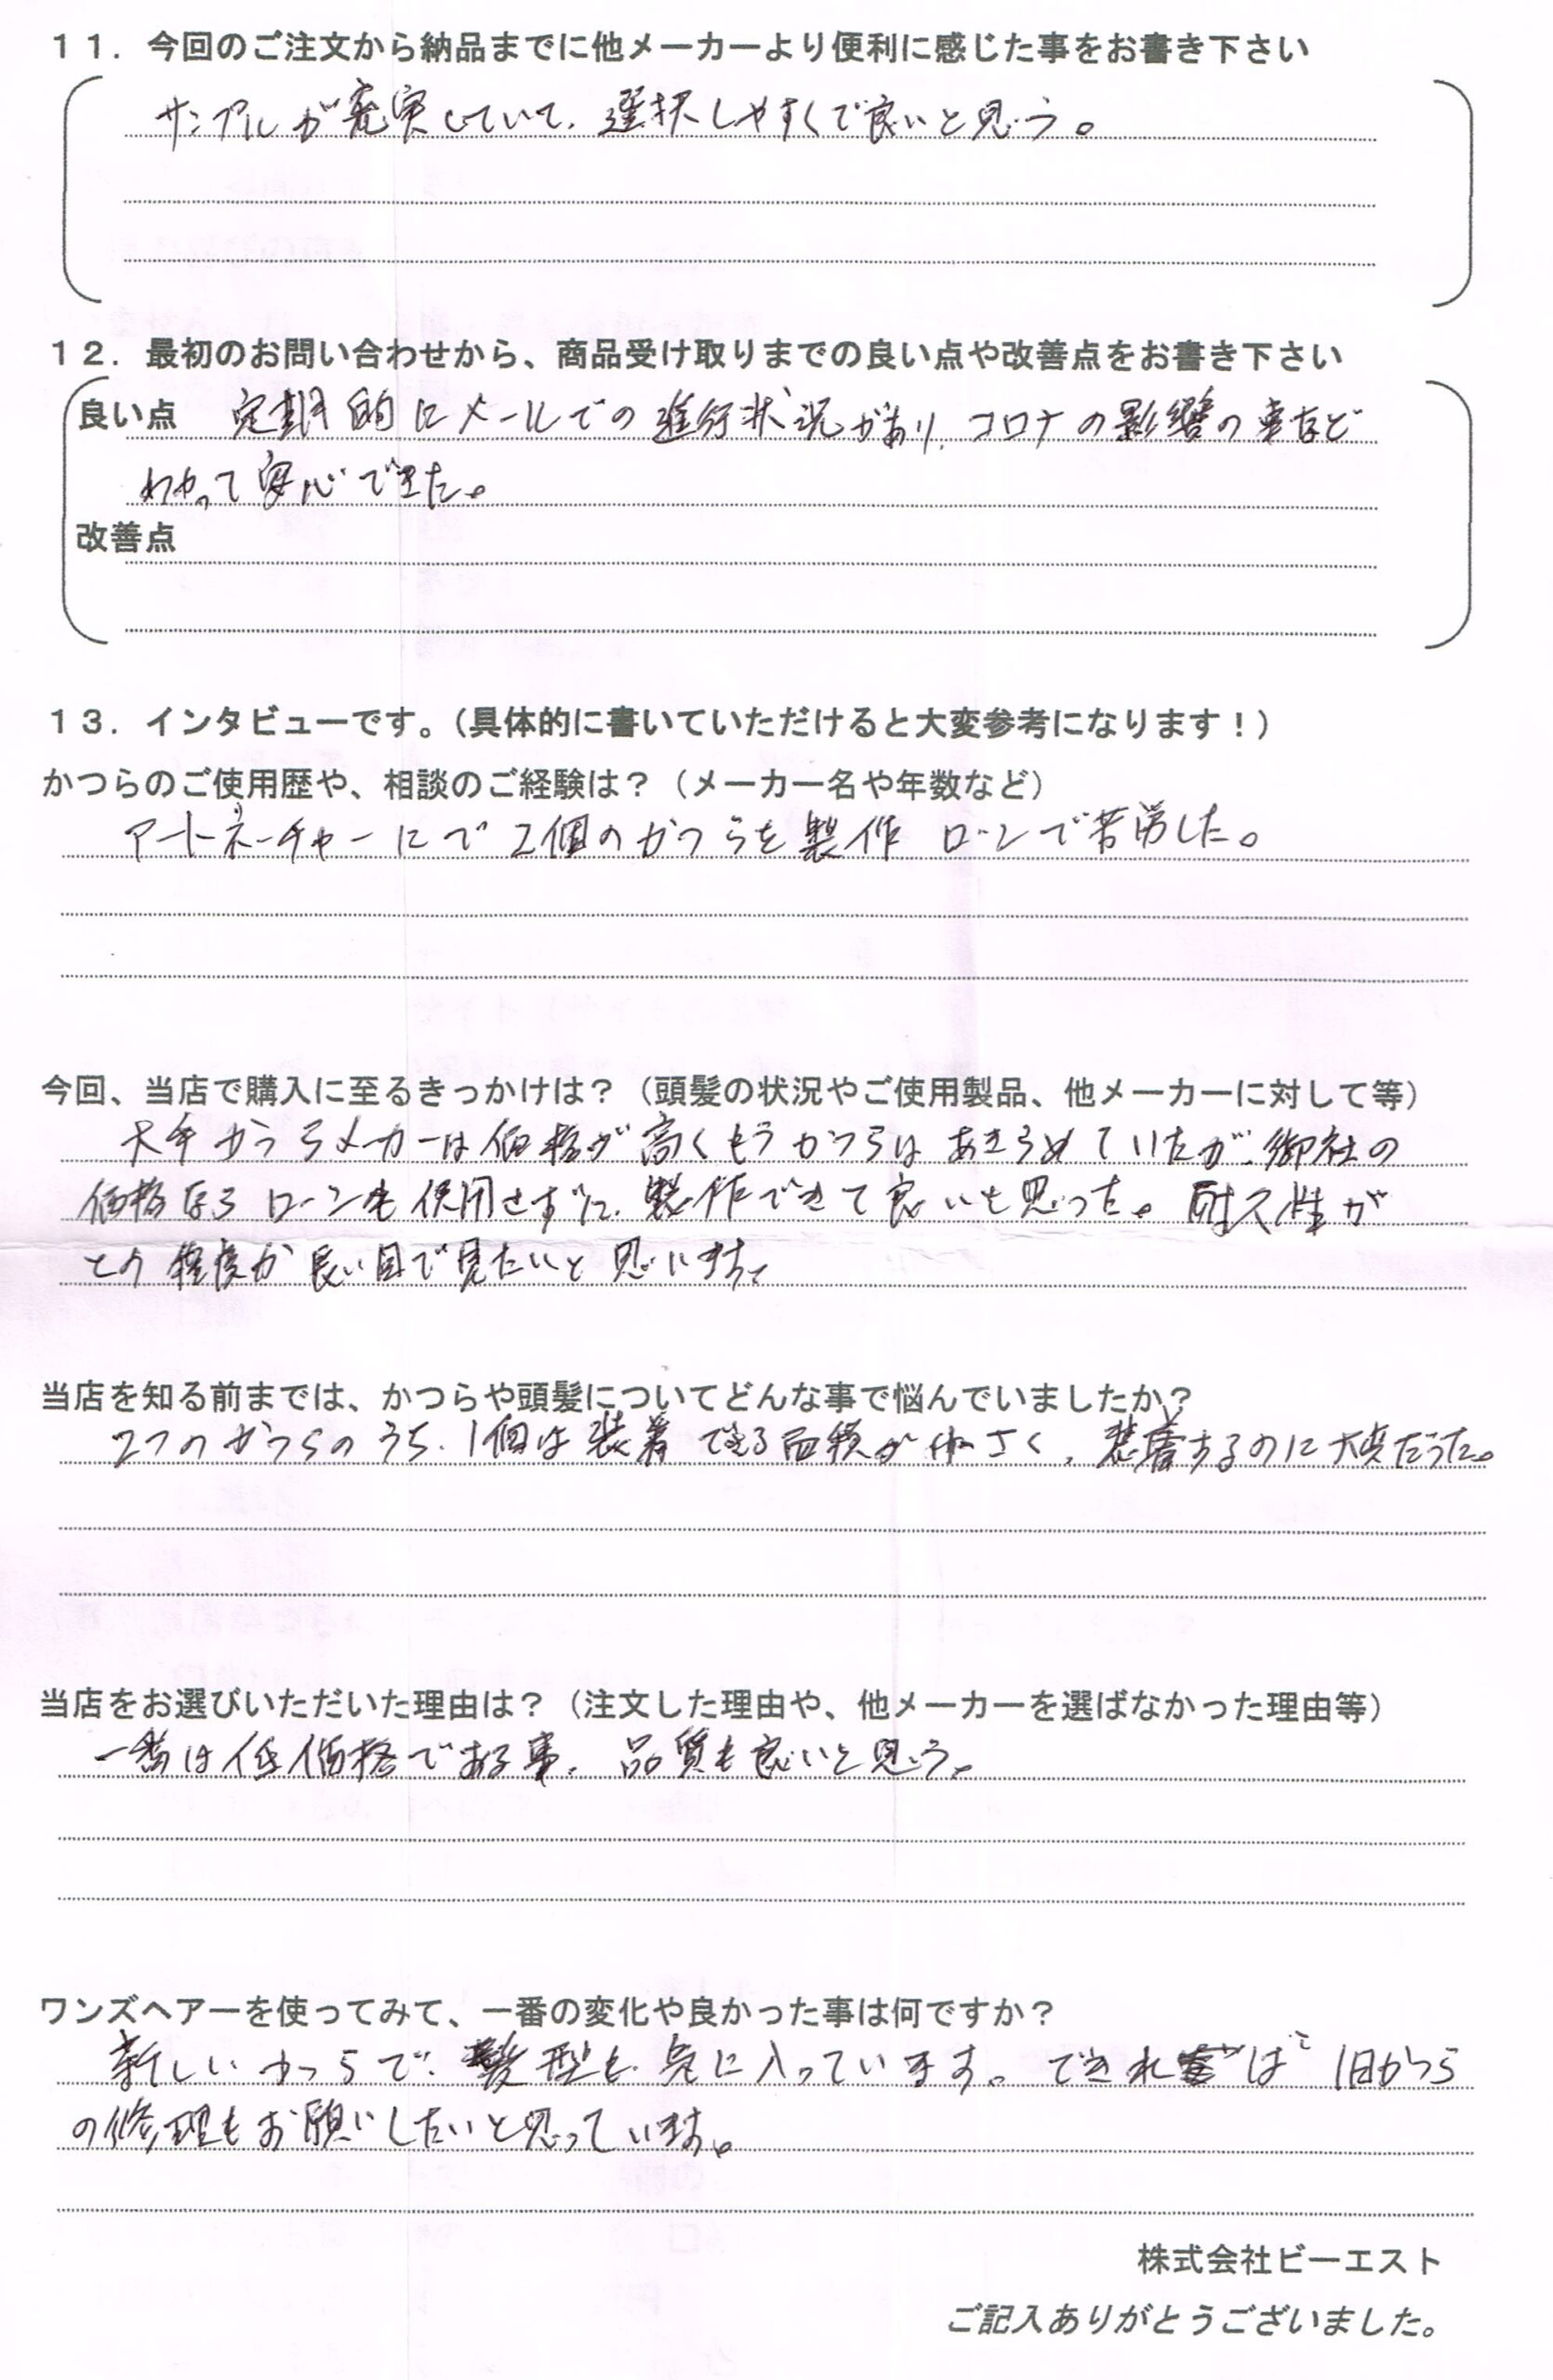 11. 今回のご注文から納品までに他メーカーより便利に感じた事をお書き下さい
サンプルが充実していて、選択しやすくて良いと思う。
12. 最初のお問い合わせから、商品受け取りまでの良い点や改善点をお書き下さい
良い点 定期的にメールでの進行状況があり、コロナの影響の事など
わかって安心できた。
改善点
13. インタビューです。(具体的に書いていただけると大変参考になります!)
かつらのご使用歴や、相談のご経験は?(メーカー名や年数など)
アートネーチャーにて2個のかつらを製作 ローンで苦労した。
今回、当店で購入に至るきっかけは?(頭髪の状況やご使用製品、他メーカーに対して等)
大手かつらメーカーは価格が高くもうかつらはあきらめていたが、御社の
価格ならローンも使用せずに、製作できて良いと思った。耐久性が
どの程度か長い目で見たいと思います。
当店を知る前までは、かつらや頭髪についてどんな事で悩んでいましたか?
2つのかつらのうち、1個は装着できる面積が小さく、装着するのに大変だった。
当店をお選びいただいた理由は?(注文した理由や、他メーカーを選ばなかった理由等)
一番は低価格である事、品質も良いと思う。
ワンズヘアーを使ってみて、一番の変化や良かった事は何ですか?
新しいかつらで、髪型も気に入っています。できれば、旧かつら
の修理もお願いしたいと思っています。
株式会社ビーエスト
ご記入ありがとうございました。